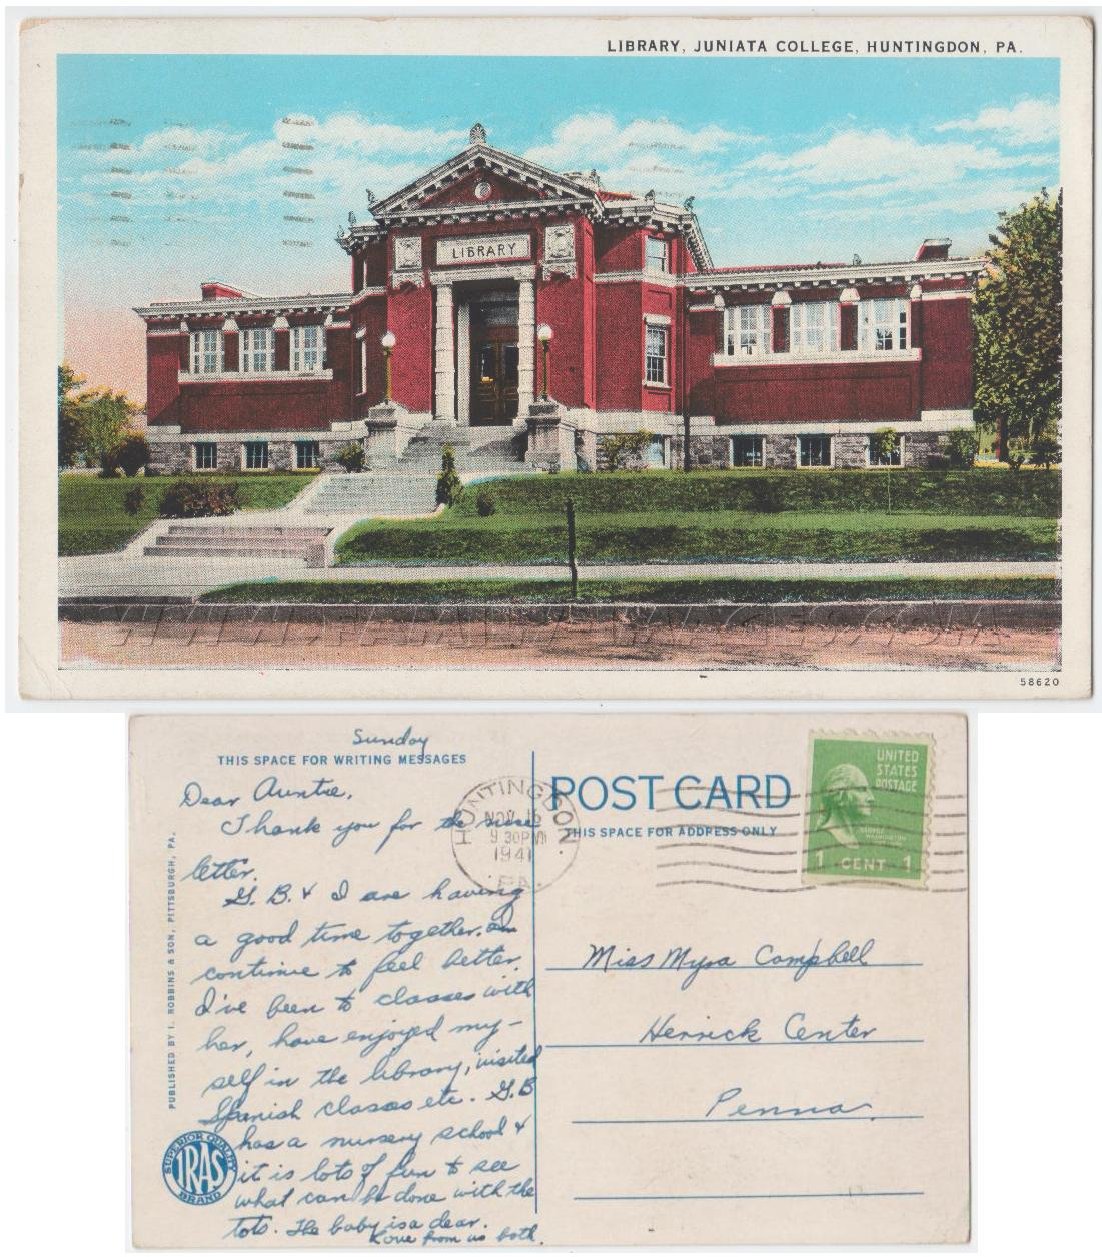 LIBRARY, JUNIATA COLLEGE, HUNTINGDON, PA.
LIBRARY
WWW.FAMILY-IMAGES.COM
58620
Sunday
THIS SPACE FOR WRITING MESSAGES
Dear Auntie,
Thank you for the nice
letter.
G. B. & I are having
a good time together. am
continue to feel better.
I've been to classes with
her, have enjoyed my-
self in the library, visited
Spanish classes etc. G.B
has a nursery school &
it is lots of fun to see
what can be done with the
tots. The baby is a dear.
Love from us both.
PUBLISHED BY I. ROBBINS & SON, PITTSBURGH, PA.
SUPERIOR QUALITY
IRAS
BRAND
HUNTINGDON.
NOV 16
9 30PM
1941
PA.
POST CARD
THIS SPACE FOR ADDRESS ONLY
UNITED
STATES
POSTAGE
GEORGE
WASHINGTON
1 CENT 1
Miss Myra Campbell
Herrick Center
Penna.